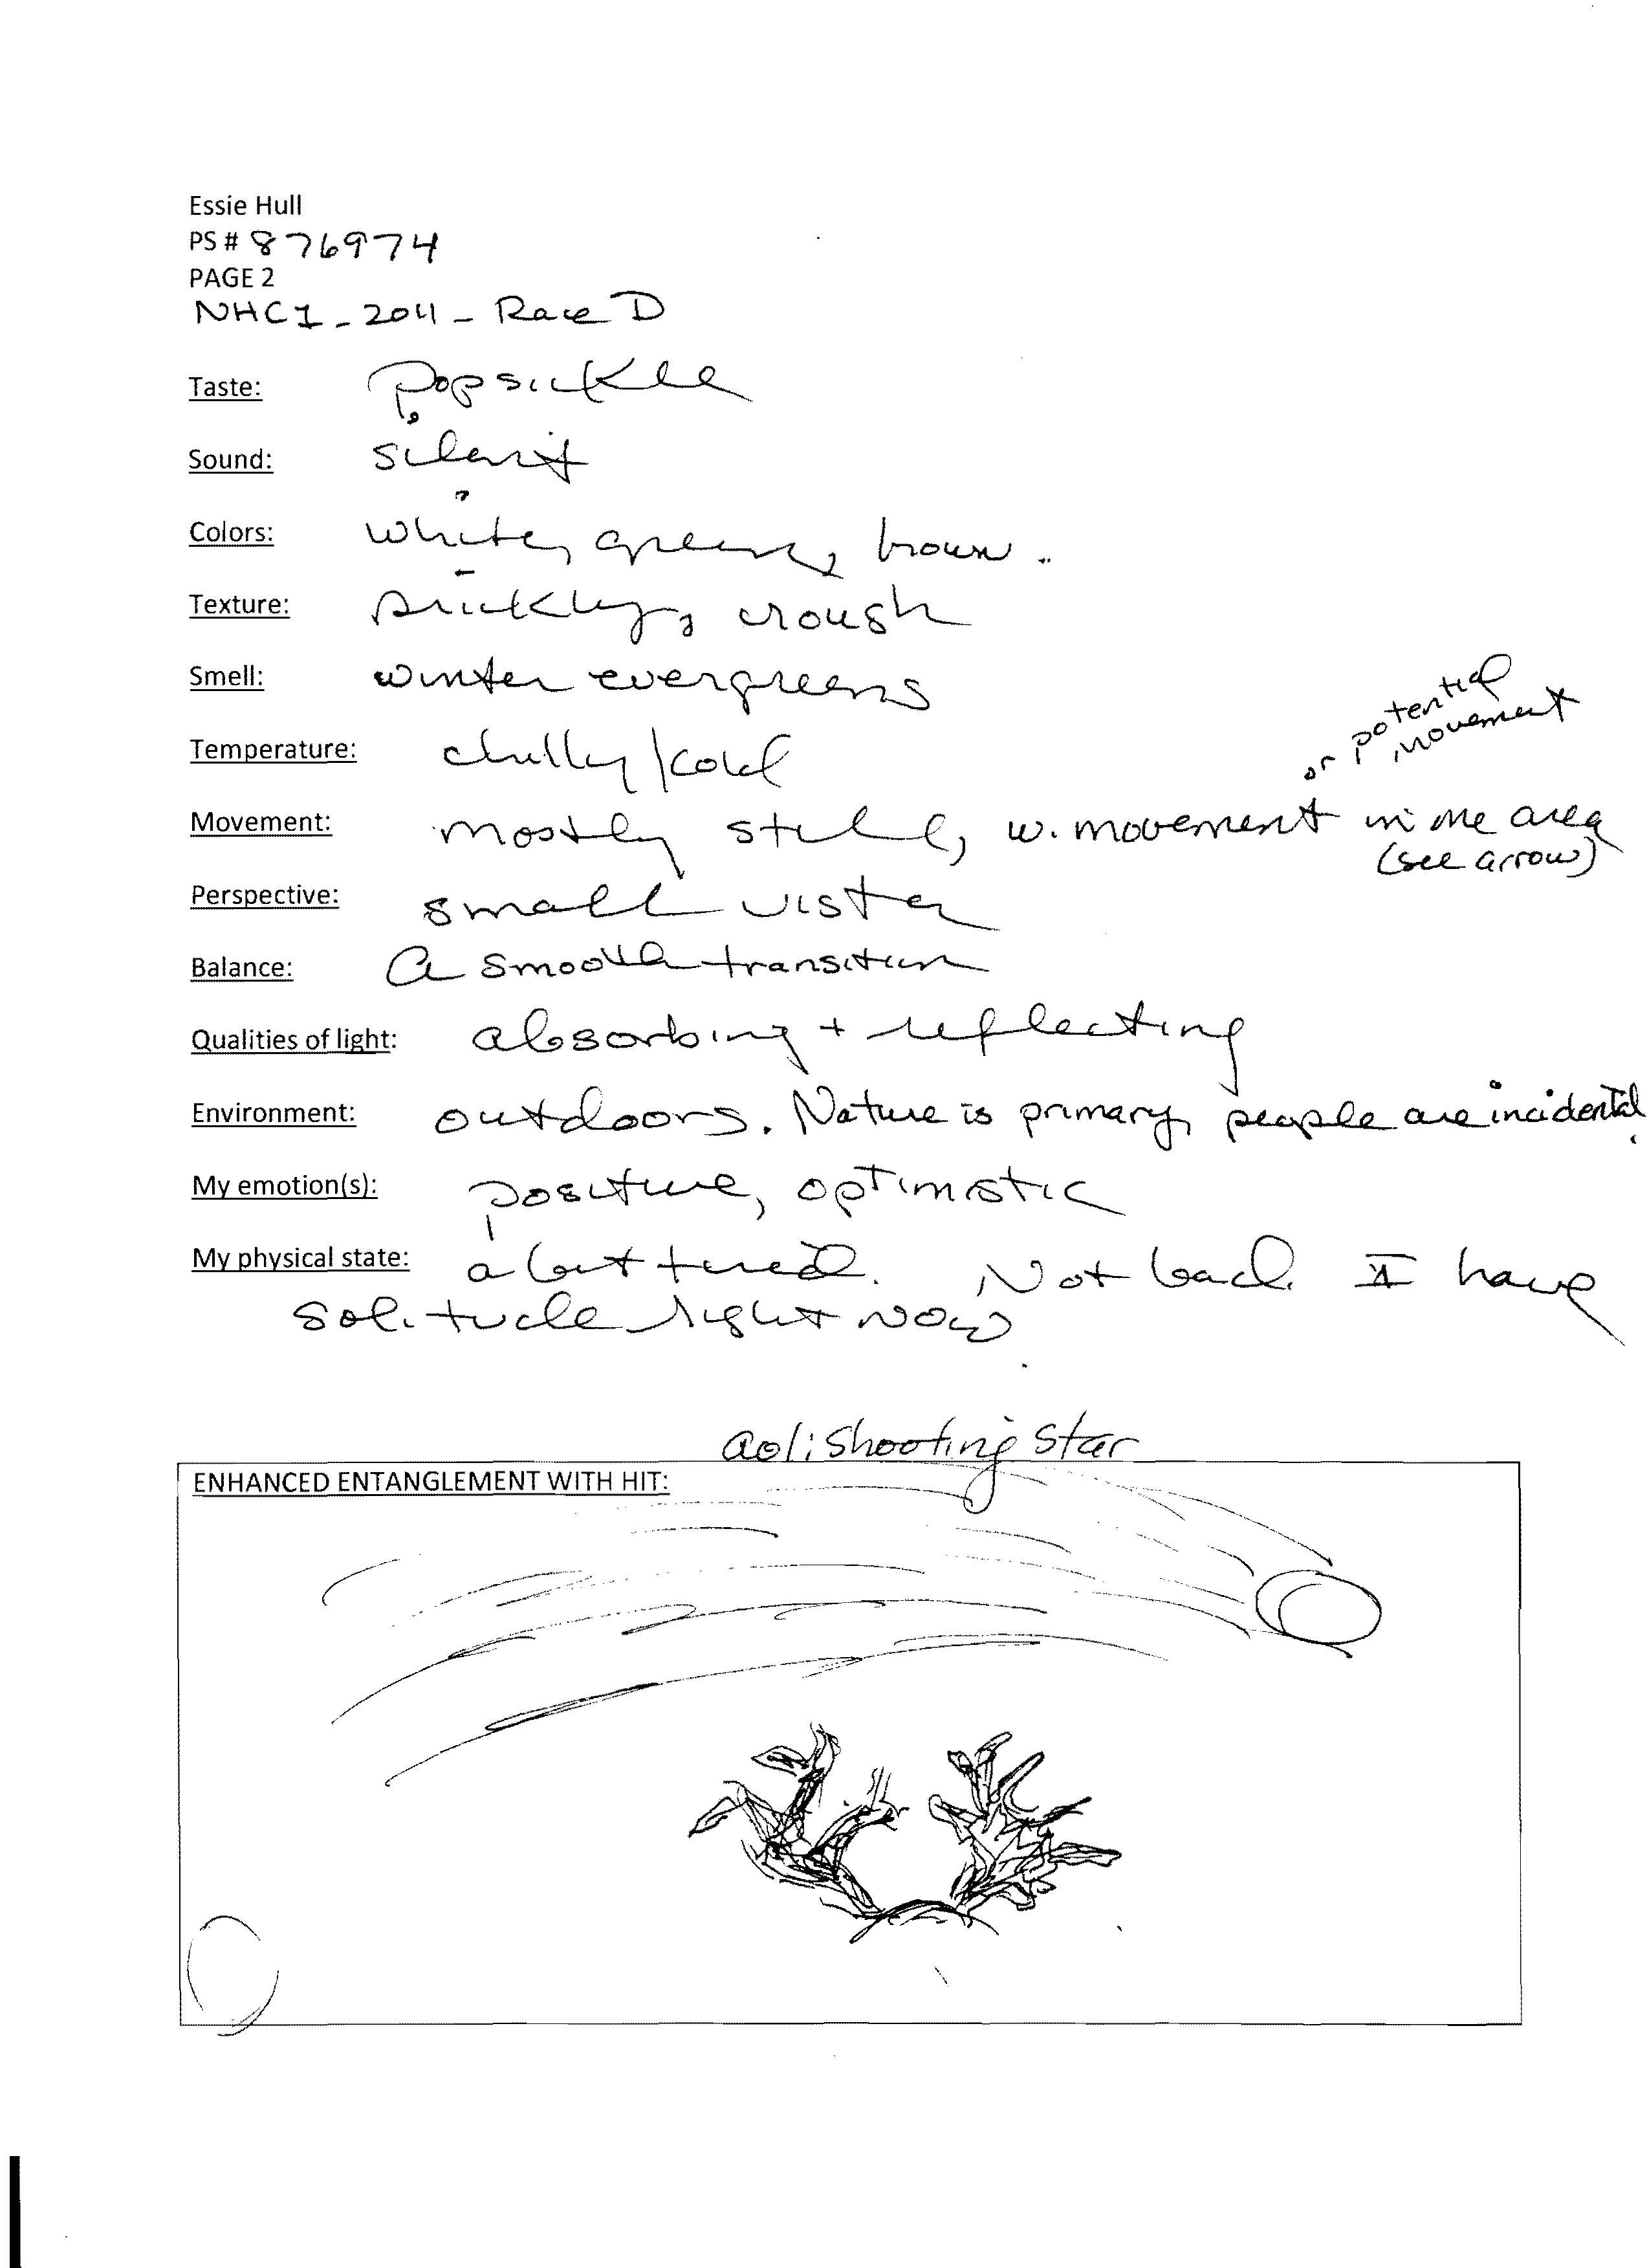 Essie Hull
PS # 876974
PAGE 2
NHC1_2011_Race D
Taste: popsickle
Sound: silent
Colors: white, green, brown.
Texture: prickly, rough
Smell: winter evergreens
or potential
movement
Temperature: chilly/cold
Movement: mostly still, w. movement in one area
(see arrow)
Perspective: small vista
Balance: a smooth transition
Qualities of light: absorbing + reflecting
Environment: outdoors. Nature is primary, people are incidental.
My emotion(s): positive, optimistic
My physical state: a bit tired. Not bad. I have
solitude right now.
aol: Shooting Star
ENHANCED ENTANGLEMENT WITH HIT: